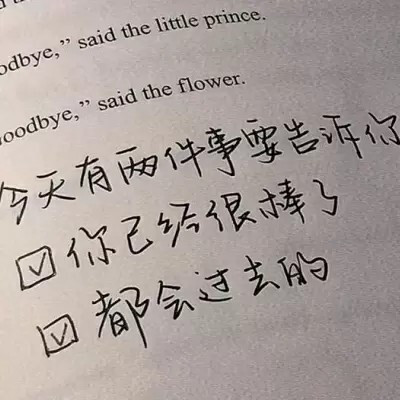 oodbye,” said the little prince.
oodbye,” said the flower.
今天有两件事要告诉你
☑ 你已经很棒了
☑ 都会过去的